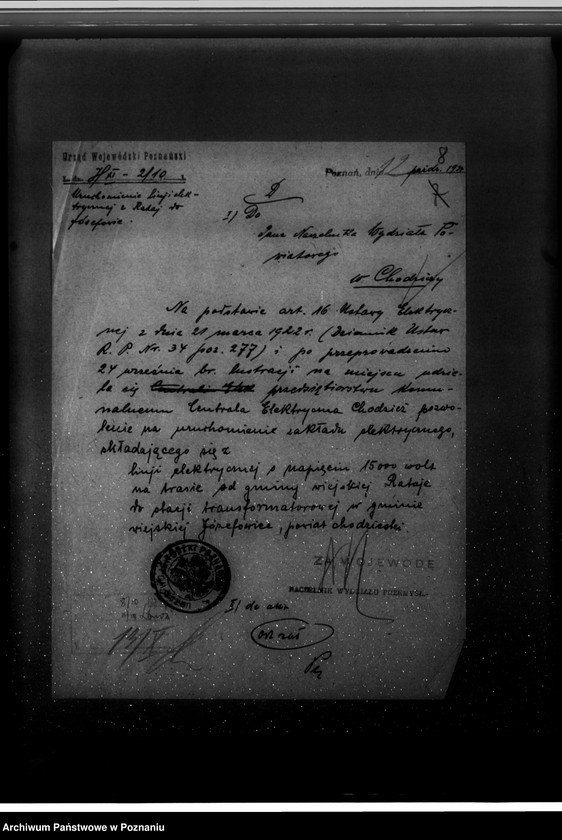 Urząd Wojewódzki Poznański
- 2/10
Uruchomienie linji elek-
trycznej z Rataj do
Józefowic.
Poznań, dnia 12 paźdz. 19
8
D
1/ Do
Pana Naczelnika Wydziału Po-
wiatowego
w Chodzieży
Na podstawie art. 16 Ustawy Elektrycz-
nej z dnia 21 marca 1922 r. (Dziennik Ustaw
R.P. Nr. 34 poz. 277) i po przeprowadzeniu
24 września br. lustracji na miejscu udzie-
la się przedsiębiorstwu komu-
nalnemu Centrala Elektryczna Chodzież pozwo-
lenie na uruchomienie zakładu elektrycznego,
składającego się z
linji elektrycznej o napięciu 15000 wolt
na trasie od gminy wiejskiej Rataje
do stacji transformatorowej w gminie
wiejskiej Józefowice, powiat chodzieski.
ZA WOJEWODĘ
NACZELNIK WYDZIAŁU PRZEMYSŁ.
8/10
do akt
Archiwum Państwowe w Poznaniu